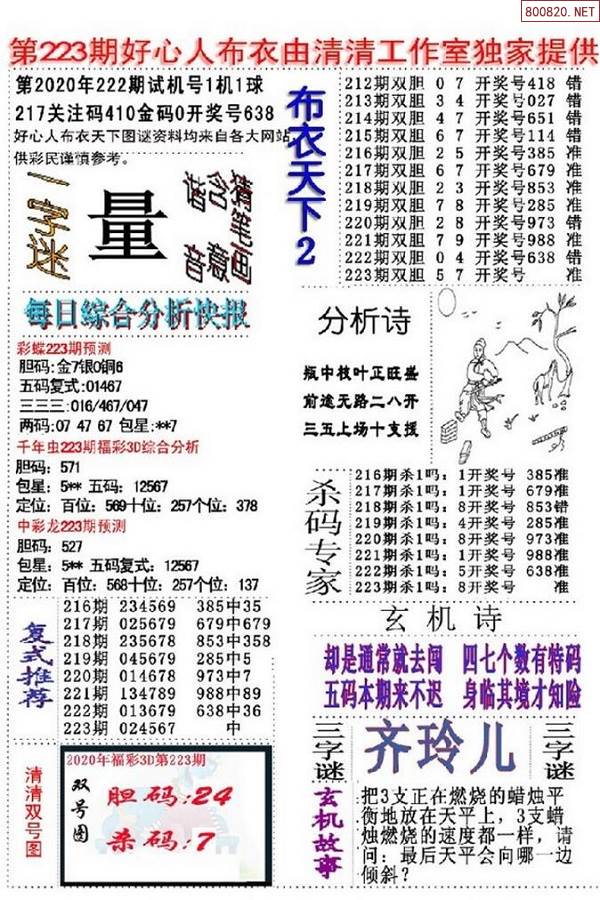 800820.NET
第223期好心人布衣由清清工作室独家提供
第2020年222期试机号1机1球
217关注码410金码0开奖号638
好心人布衣天下图谜资料均来自各大网站
供彩民谨慎参考。
一字谜
量
猜笔画
含意
谐音
布衣天下2
212期双胆 0 7 开奖号418 错
213期双胆 3 4 开奖号027 错
214期双胆 4 7 开奖号651 错
215期双胆 6 7 开奖号114 错
216期双胆 2 5 开奖号385 准
217期双胆 6 7 开奖号679 准
218期双胆 2 3 开奖号853 准
219期双胆 7 8 开奖号285 准
220期双胆 2 8 开奖号973 错
221期双胆 7 9 开奖号988 准
222期双胆 0 4 开奖号638 错
223期双胆 5 7 开奖号 准
每日综合分析快报
彩蝶223期预测
胆码:金7银0铜6
五码复式:01467
三三三:016/467/047
两码:07 47 67 包星:**7
千年虫223期福彩3D综合分析
胆码：571
包星：5** 五码：12567
定位：百位：569十位：257个位：378
中彩龙223期预测
胆码：527
包星：5** 五码复式：12567
定位：百位：568十位：257个位：137
分析诗
瓶中枝叶正旺盛
前途无路二八开
三五上场十支援
杀码专家
216期杀1吗：1开奖号 385准
217期杀1吗：1开奖号 679准
218期杀1吗：8开奖号 853错
219期杀1吗：4开奖号 285准
220期杀1吗：8开奖号 973准
221期杀1吗：1开奖号 988准
222期杀1吗：5开奖号 638准
223期杀1吗：8开奖号 准
复式推荐
216期 234569 385中35
217期 025679 679中679
218期 235678 853中358
219期 045679 285中5
220期 014678 973中7
221期 134789 988中89
222期 013679 638中36
223期 024567 中
玄机诗
却是通常就去闯 四七个数有特码
五码本期来不迟 身临其境才知险
三字谜
齐玲儿
三字谜
清清双号图
2020年福彩3D第223期
双号图
胆码:24
杀码:7
玄机故事
把3支正在燃烧的蜡烛平
衡地放在天平上，3支蜡
烛燃烧的速度都一样，请
问：最后天平会向哪一边
倾斜？